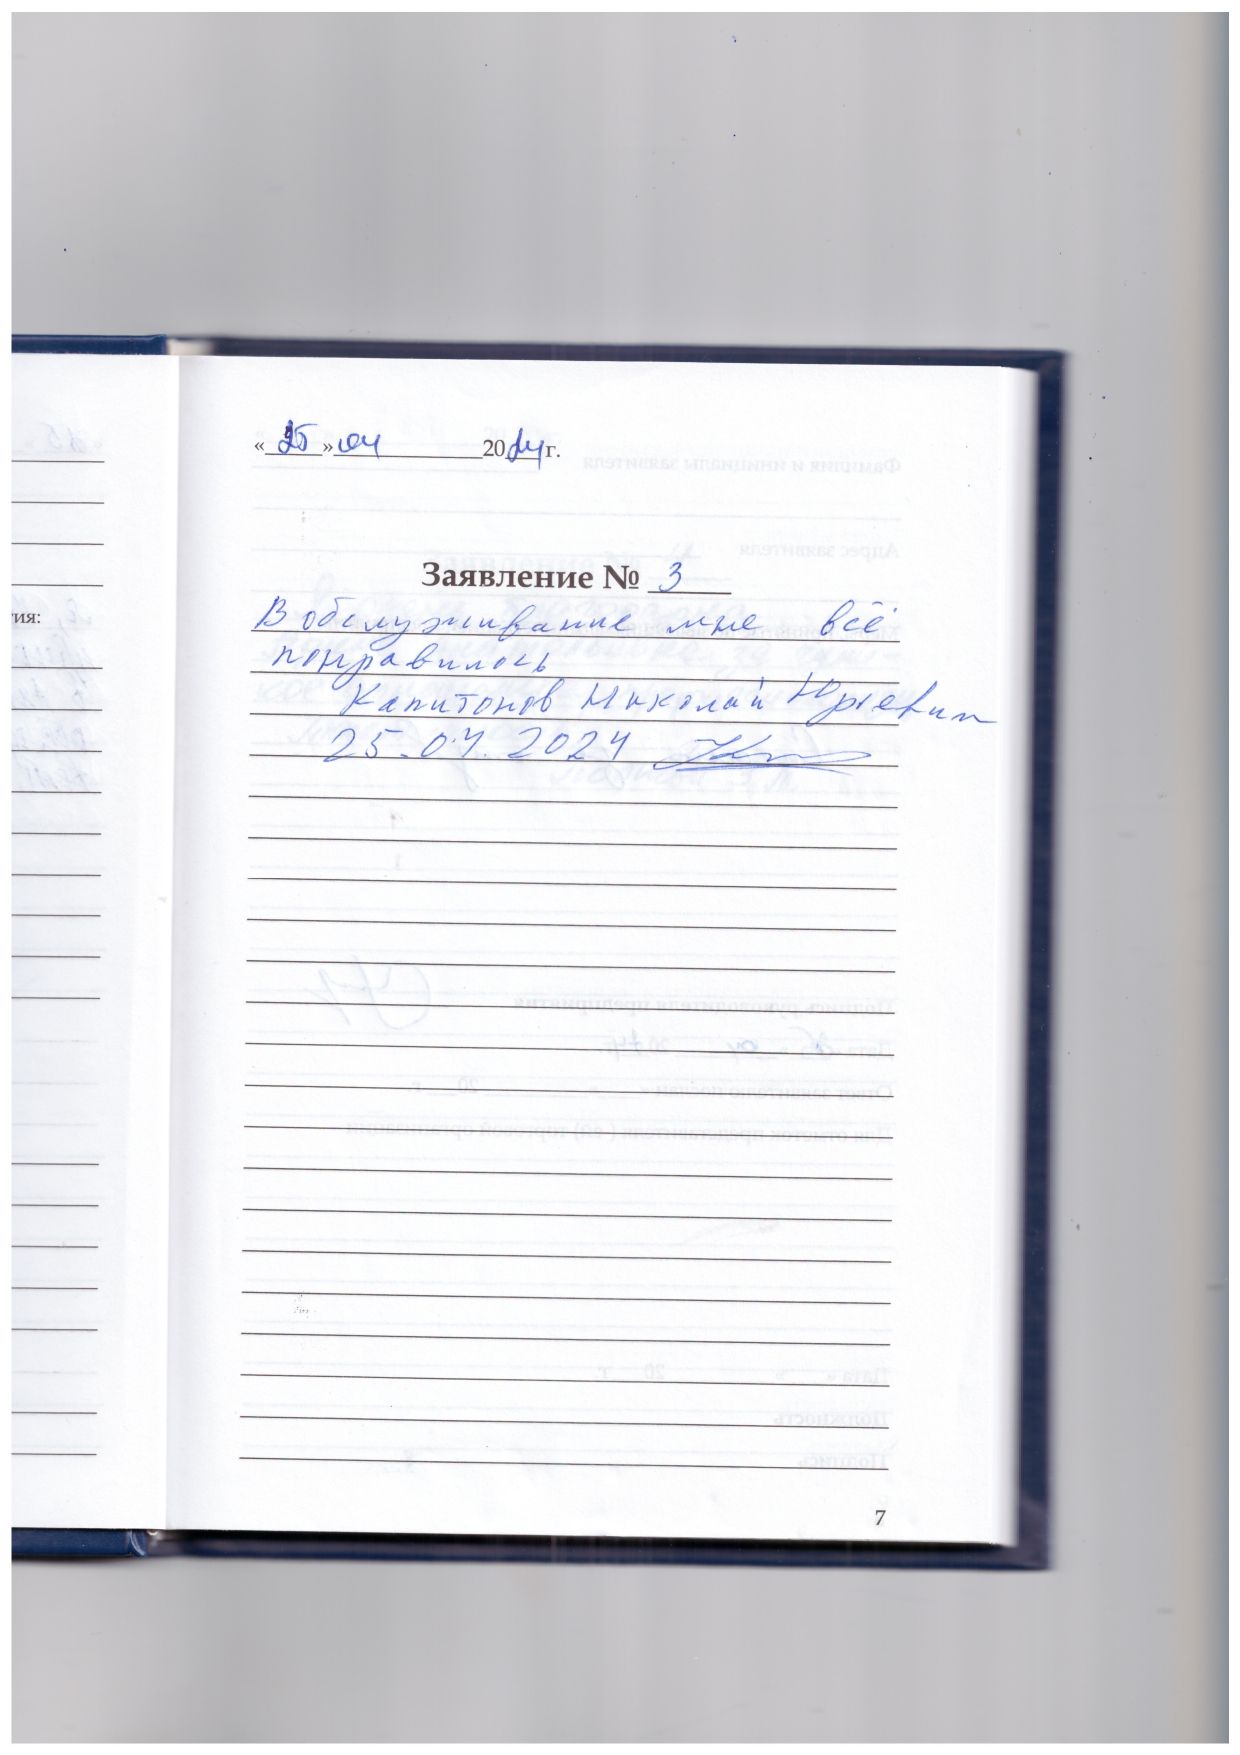 «25» 04 2024 г.
Заявление № 3
В обслуживание мне всё
понравилось
Капитонов Николай Юрьевич
25.04.2024
ия:
7